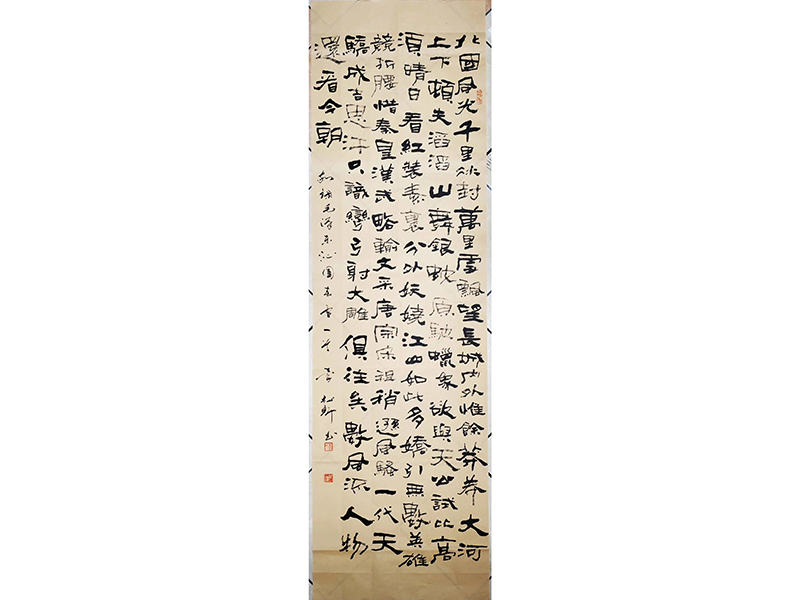 北國風光千里冰封萬里雪飄望長城內外惟餘莽莽大河
上下頓失滔滔山舞銀蛇原馳蠟象欲與天公試比高
須晴日看紅裝素裹分外妖嬈江山如此多嬌引無數英雄
競折腰惜秦皇漢武略輸文采唐宗宋祖稍遜風騷一代天
驕成吉思汗只識彎弓射大雕俱往矣數風流人物
還看今朝
毛泽东沁園春雪一首 书